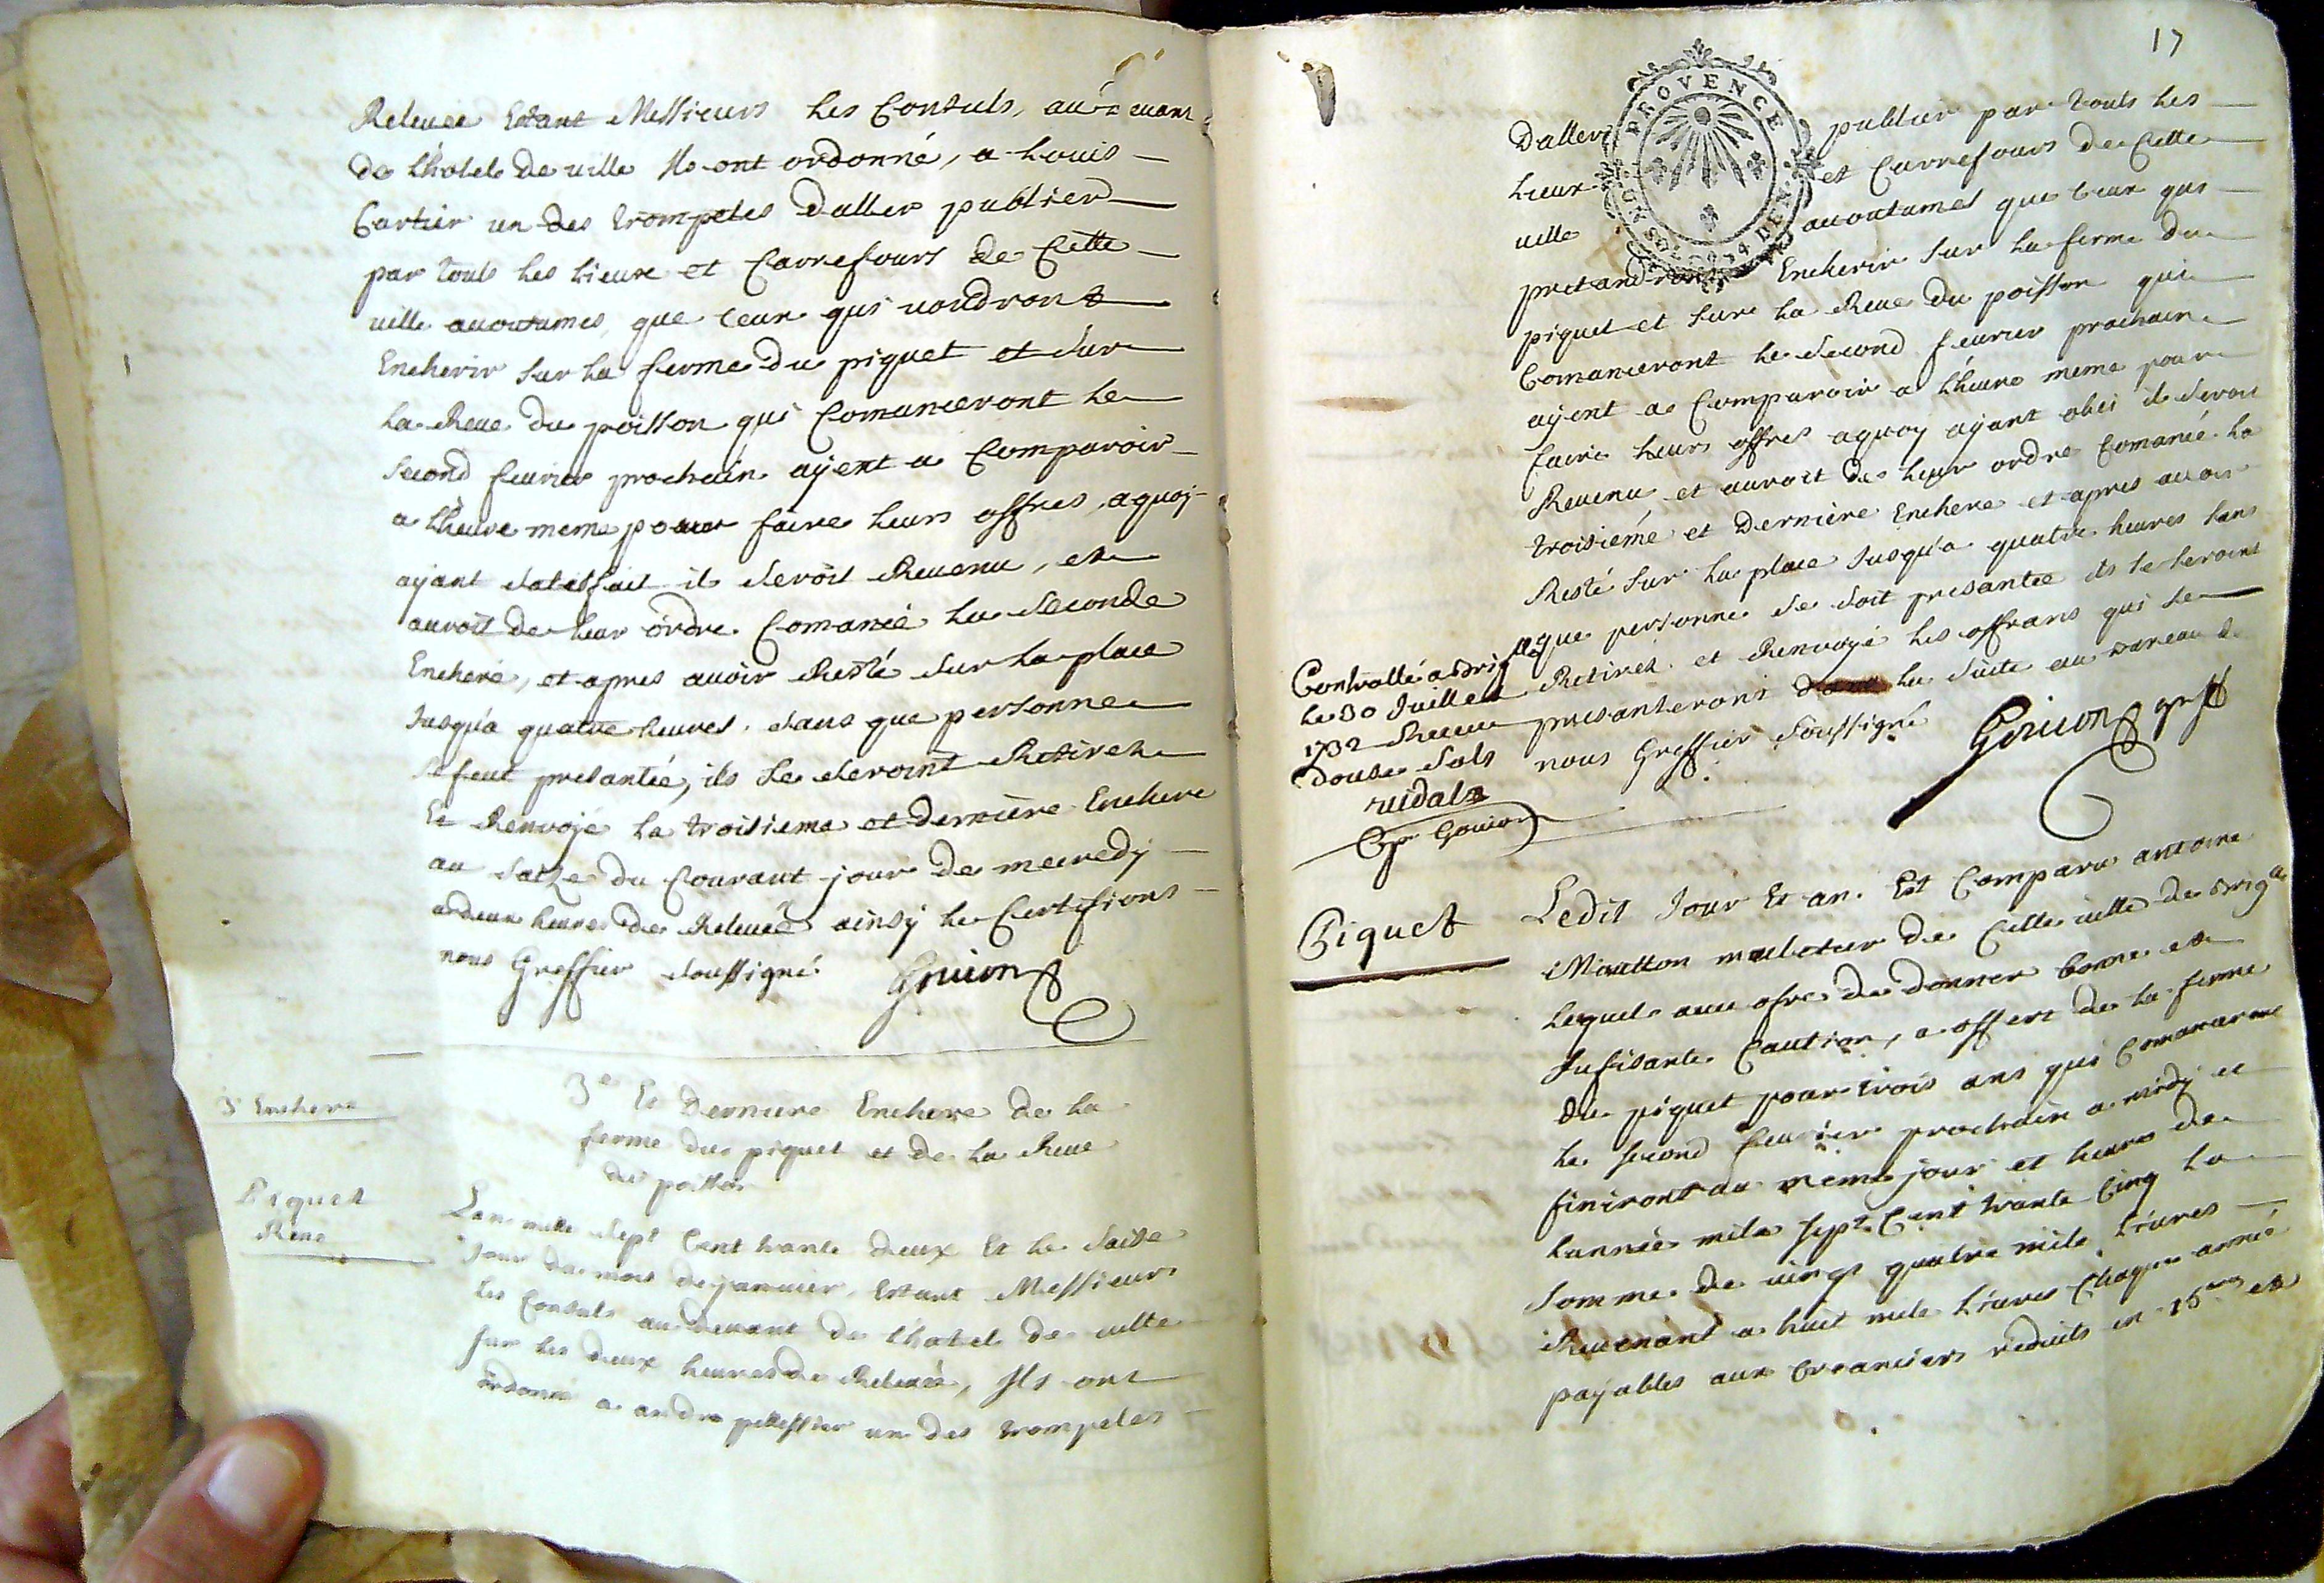 Releuee Estant Messieurs les Consuls, au deuant
de lhotel de uille Ils ont ordonné, a Louis
Cartier un des trompetes daller publier
par touts les lieux et Carrefours de Cette
uille acoutumes, que ceux qui uoudront
Encherir sur la ferme du piquet et sur
la Reue du poisson qui Comanceront le
second feurier prochain ayent a Comparoir
a lheure meme pour faire leurs offres, aquoy
ayant satisfait il seroit Reuenu, et
auroit de leur ordre Comancé la seconde
Enchere, et apres auoir Resté sur la place
Jusqua quatre heures, sans que personne
se feut presantée, ils se seroint Retirez
Et Renuoyé la troisieme et derniere Enchere
au saize du Courant jour de mecredy
a deux heures de Releuée ainsy le Certifions
nous Greffier soussigné Gouion
3e Enchere
3e Et Derniere Enchere de la
ferme du piquet et de la Reue
du poisson
Piquet
Reue
Lan mille sept Cent trante deux Et le saise
Jour du mois de januier, Estant Messieurs
les Consuls au deuant de lhotel de uille
sur les deux heures de Releuée, Ils ont
ordonné a andre pellissier un des trompetes
17
PROVENCE
Daller publier par touts les
lieux et Carrefours de Cette
uille acoutumes que ceux qui
pretandront Encherir sur la ferme du
piquet et sur la Reue du poisson qui
Comanceront le second feurier prochain
ayent a Comparoir a lheure meme pour
faire leurs offres aquoy ayant obei il seroit
Reuenu et auroit de leur ordre Comancé la
troisiéme et Derniere Enchere et apres auoir
Resté sur la place Jusqua quatre heures sans
que personne se soit presantée ils se seroint
Retirez et Renuoyé les offrans qui se
presanteront la suite au bureau de
nous Greffier soussigné Gouion greff
Controllé a Briglle
le 30 Juillet
1732 Receu
douse sols
uidal
Gouion
Piquet
Ledit Jour Et an. Est Comparu antoine
Moutton muletier de Cette uille de Briglle
lequel auec ofre de donner bonne et
sufisante Caution, a offert de la ferme
du piquet pour trois ans qui Comanceront
le second feurier prochain a midy et
finiront au meme jour et heure de
lannée mile sept Cent trante Cinq la
somme de uingt quatre mile liures
Reuenant a huit mile liures Chaque année
payables aux Creanciers reduits en 15 et